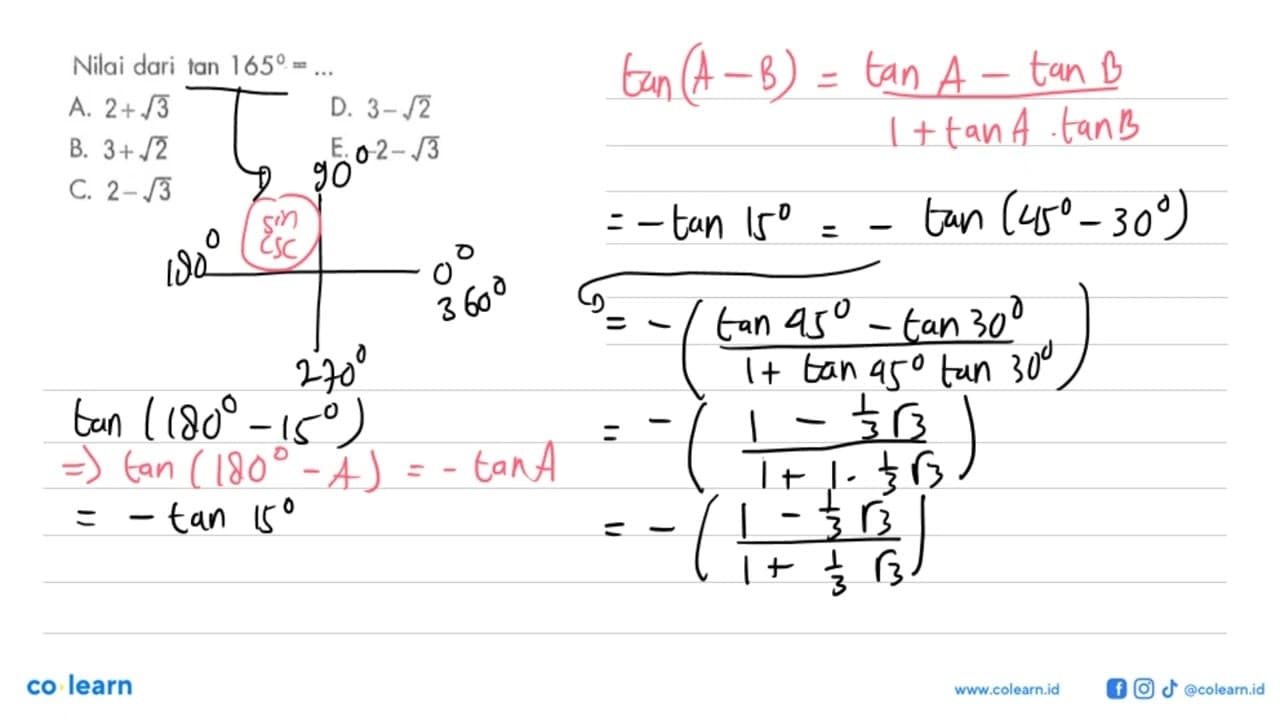 Nilai dari tan 165° = ...
A. 2+√3
B. 3+√2
C. 2-√3
D. 3-√2
E. 0-2-√3
90°
sin
csc
180°
0°
360°
270°
tan (180° - 15°)
=> tan (180° - A) = - tan A
= - tan 15°
tan (A - B) = (tan A - tan B) / (1 + tan A . tan B)
= - tan 15° = - tan (45° - 30°)
= - ((tan 45° - tan 30°) / (1 + tan 45° tan 30°))
= - ((1 - 1/3 √3) / (1 + 1 . 1/3 √3))
= - ((1 - 1/3 √3) / (1 + 1/3 √3))
co learn
www.colearn.id
@colearn.id